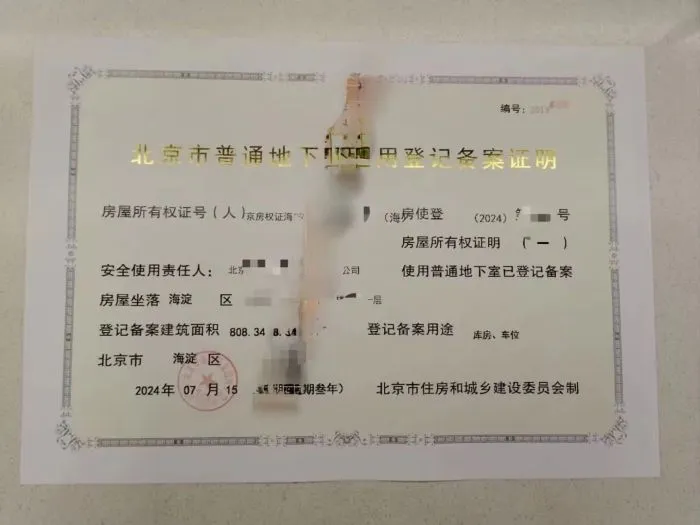 编号:
北京市普通地下 用登记备案证明
房屋所有权证号(人)京房权证海 (海 房使登 (2024) 号
房屋所有权证明 (" 一 )
安全使用责任人: 北京 公司 使用普通地下室已登记备案
房屋坐落 海淀 区 一层
登记备案建筑面积 808.34 登记备案用途 库房、车位
北京市 海淀 区
2024年 07 月 15 期叁年) 北京市住房和城乡建设委员会制